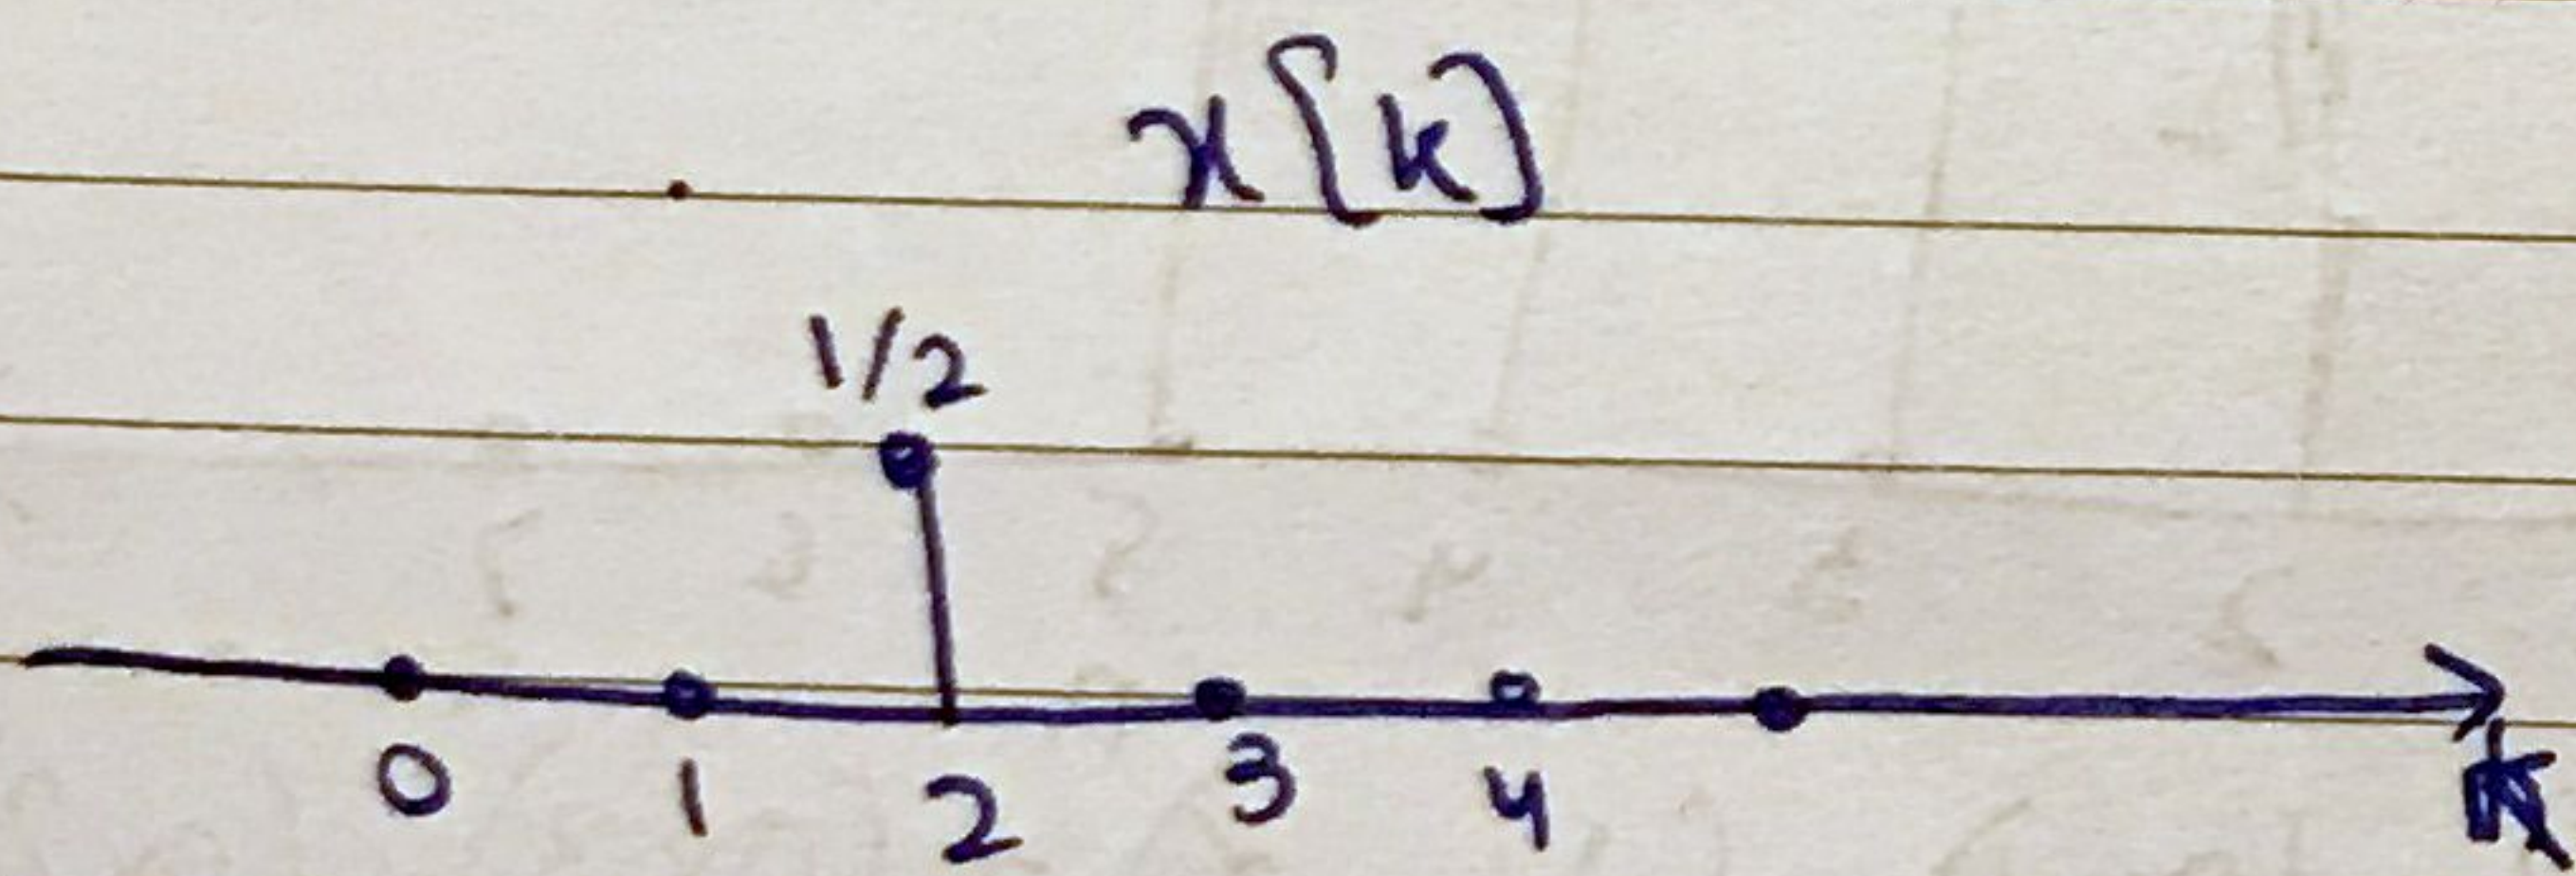 x[k]
1/2
0 1 2 3 4 k